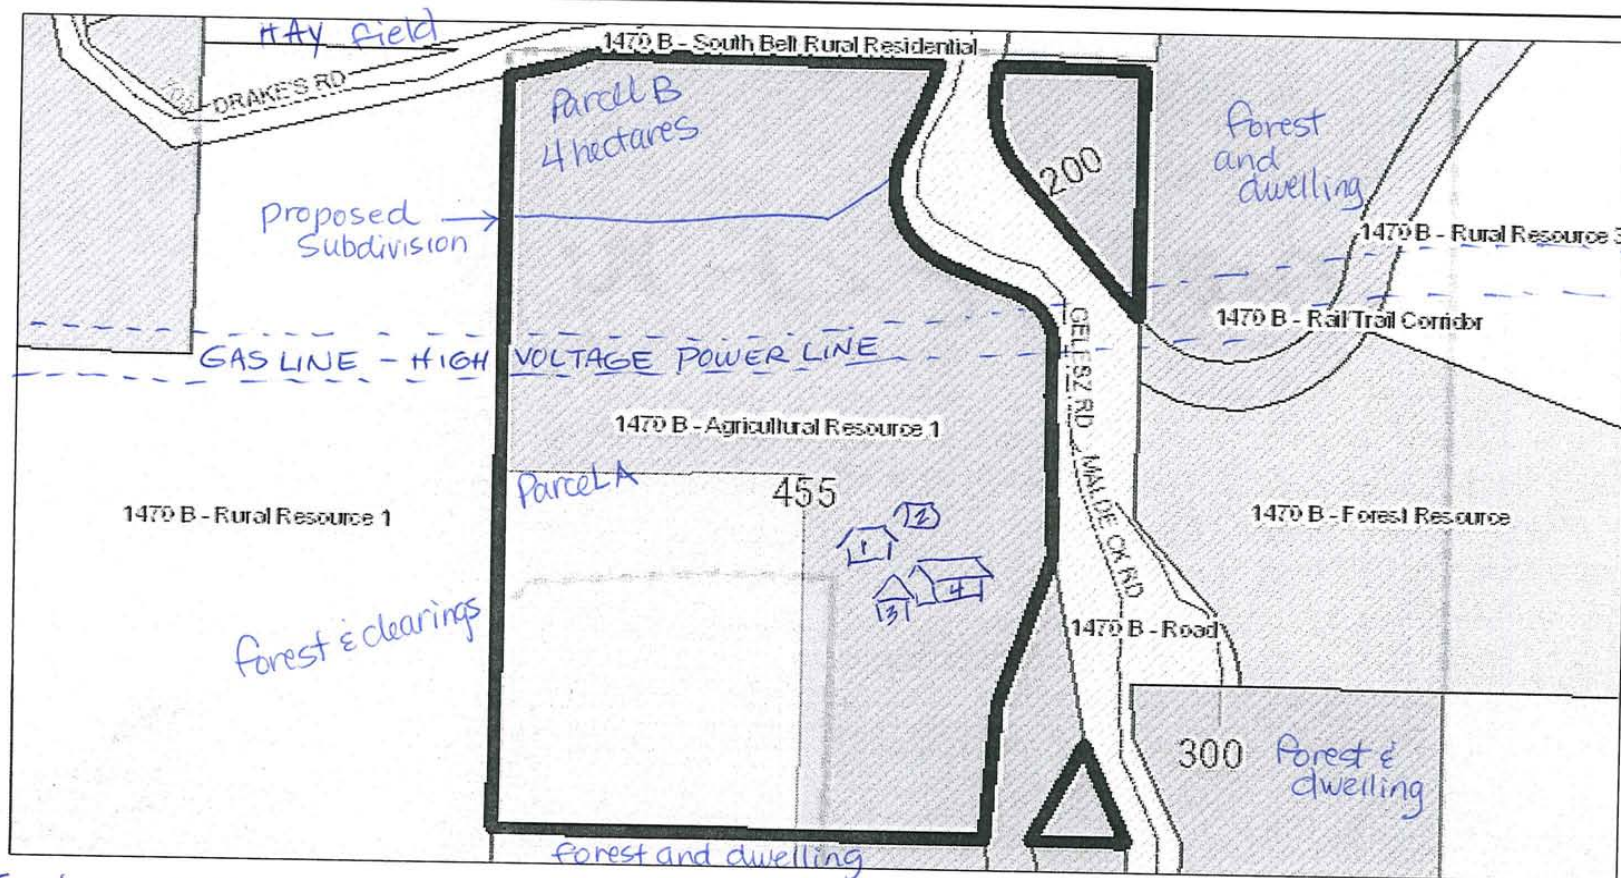 HAY field
1470 B - South Belt Rural Residential
DRAKE'S RD
Parcel B
4 hectares
200
forest
and
dwelling
proposed
Subdivision
1470 B - Rural Resource 3
1470 B - Rail/Trail Corridor
GAS LINE - HIGH VOLTAGE POWER LINE
GELESZ RD
1470 B - Agricultural Resource 1
Parcel A
455
MALDE CK RD
1470 B - Rural Resource 1
1470 B - Forest Resource
1
2
3
4
forest & clearings
1470 B - Road
300
forest &
dwelling
forest and dwelling